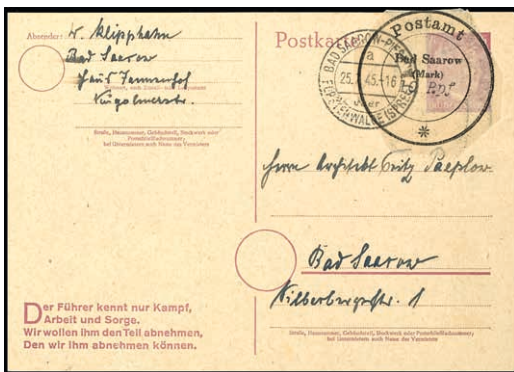 Absender: W. Klipphahn
Bad Saarow
Haus Tannenhof
Wohnort, auch Zustell- oder Leitpostamt
Straße, Hausnummer, Gebäudeteil, Stockwerk oder
Postschließfachnummer;
bei Untermietern auch Name des Vermieters
Postkarte
BAD SAAROW-PIESKOW
a
25.7.45.-16
(FÜRSTENWALDE (SPREE))
Postamt
Bad Saarow
(Mark)
*
Herrn Architekt Fritz Paeplow
Bad Saarow
Silberbergstr. 1
Straße, Hausnummer, Gebäudeteil, Stockwerk oder Postschließfachnummer;
bei Untermietern auch Name des Vermieters
Der Führer kennt nur Kampf,
Arbeit und Sorge.
Wir wollen ihm den Teil abnehmen,
Den wir ihm abnehmen können.